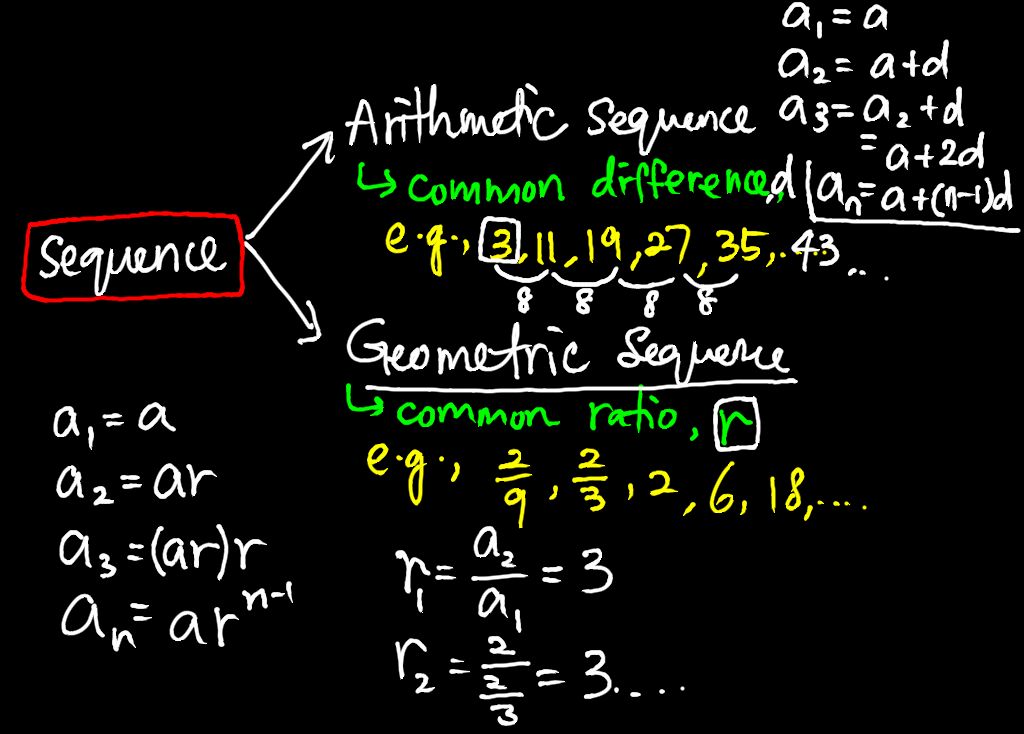 Sequence
Arithmetic Sequence
↳ common difference, d
e.g., 3, 11, 19, 27, 35, ... 43, ...
8 8 8 8
a₁ = a
a₂ = a+d
a₃ = a₂ +d
= a+2d
aₙ = a+(n-1)d
Geometric Sequence
↳ common ratio, r
e.g., 2/9, 2/3, 2, 6, 18, ....
r₁ = a₂/a₁ = 3
r₂ = 2/(2/3) = 3....
a₁ = a
a₂ = ar
a₃ = (ar)r
aₙ = arⁿ⁻¹